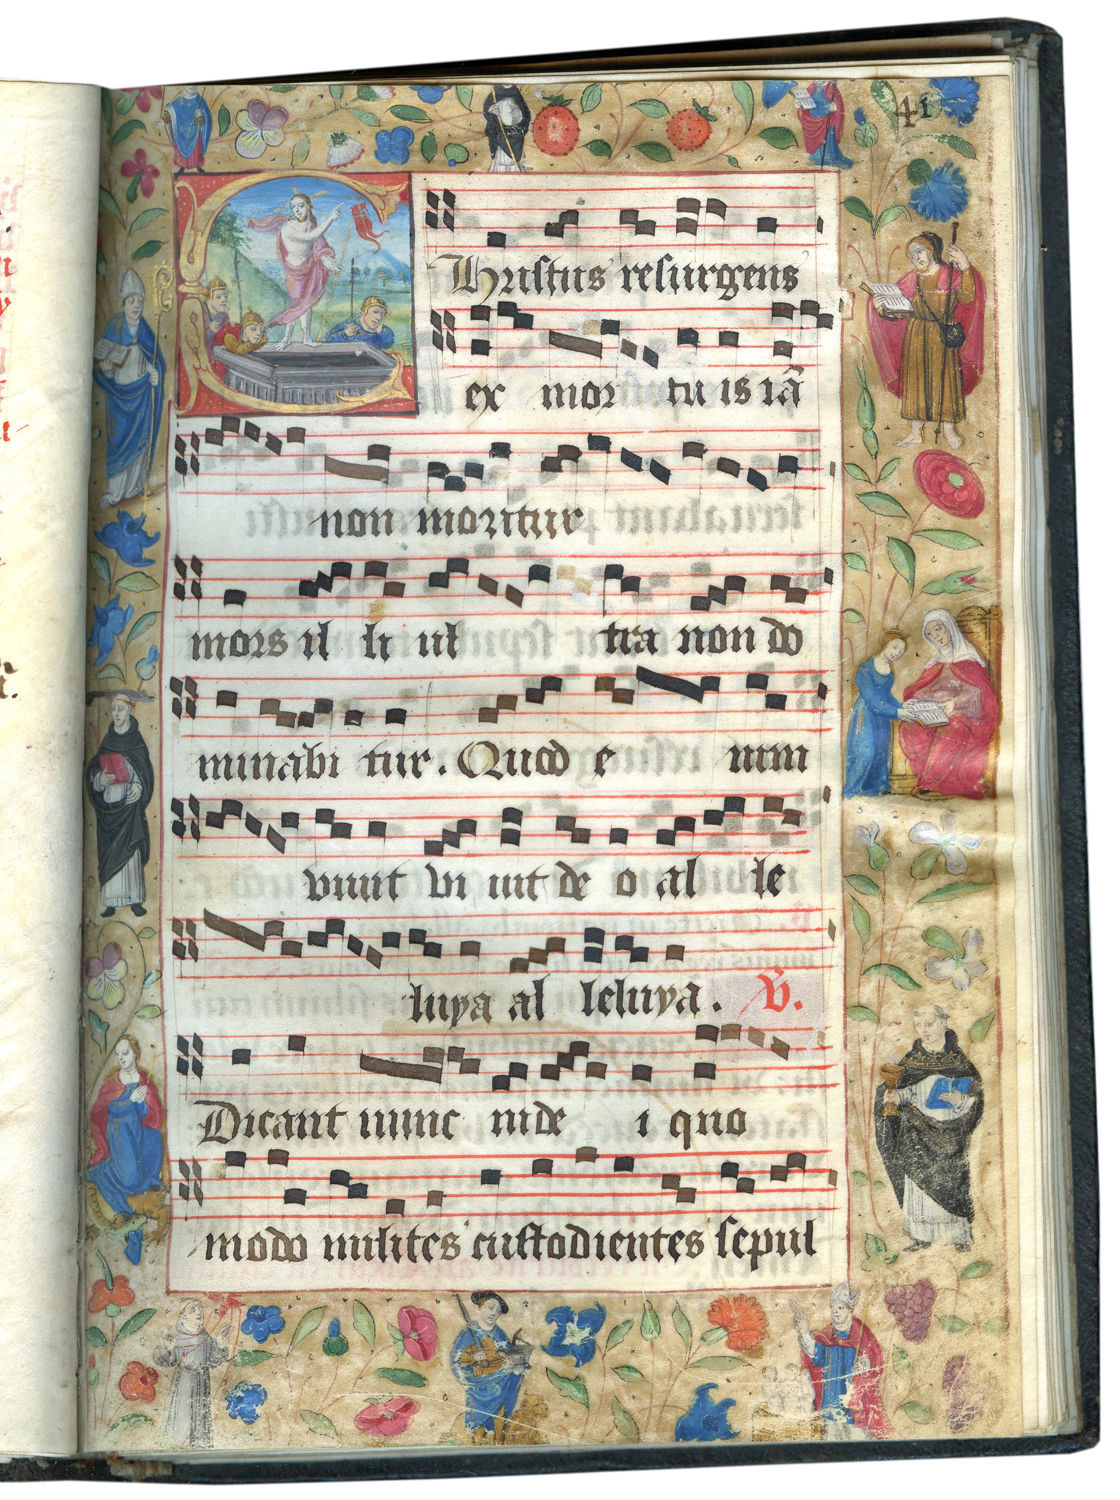 41
Christus resurgens
ex mor tu is iã
non moritur
mors il li ul tra non do
minabi tur. Quod e nim
viuit vi uit de o al le
luya al leluya. V.
Dicant nunc iude i quo
modo milites custodientes sepul